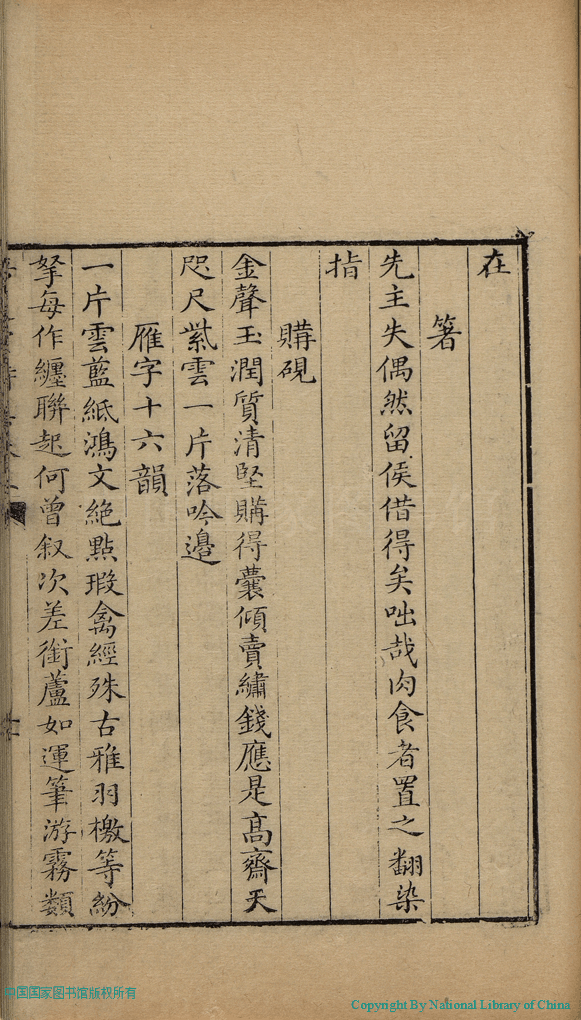 在
箸
先主失偶然留侯借得矣咄哉肉食者置之翻染
指
購硯
金聲玉潤質清堅購得囊傾賣繡錢應是高齋天
咫尺紫雲一片落吟邊
雁字十六韻
一片雲藍紙鴻文絶點瑕禽經殊古雅羽檄等紛
拏每作纏聯起何曾叙次差銜蘆如運筆游霧類
中国国家图书馆版权所有
Copyright By National Library of China